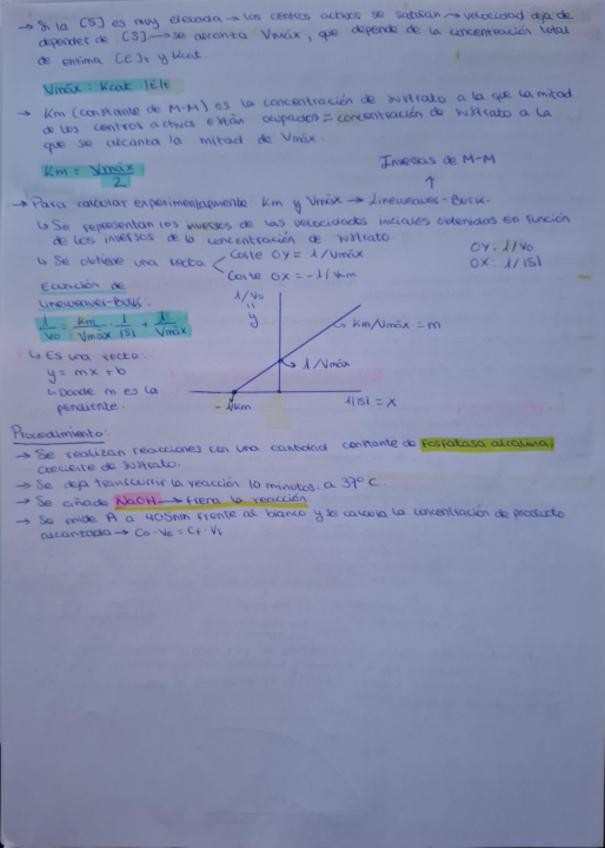 → Si la [S] es muy elevada → los centros activos se saturan → velocidad deja de
depender de [S] → se alcanza Vmáx, que depende de la concentración total
de enzima [E]t y Kcat.
Vmáx = Kcat · |E|t
→ Km (constante de M-M) es la concentración de sustrato a la que la mitad
de los centros activos están ocupados = concentración de sustrato a la
que se alcanza la mitad de Vmáx.
Km = Vmáx / 2
Inversas de M-M
↑
→ Para calcular experimentalmente Km y Vmáx → Lineweaver-Burk.
↳ Se representan los inversos de las velocidades iniciales obtenidas en función
de los inversos de la concentración de sustrato.
OY: 1/V0
↳ Se obtiene una recta < Corte OY = 1/Vmáx
Corte OX = -1/Km
OX: 1/|S|
Ecuación de
Lineweaver-Burk:
1/V0 = Km/Vmáx · 1/|S| + 1/Vmáx
↳ Es una recta:
y = mx + b
↳ Donde m es la
pendiente.
1/V0
=
y
Km/Vmáx = m
1/Vmáx
-1/Km
1/|S| = x
Procedimiento:
→ Se realizan reacciones con una cantidad constante de fosfatasa alcalina,
creciente de sustrato.
→ Se deja transcurrir la reacción 10 minutos a 37ºC.
→ Se añade NaOH → frena la reacción.
→ Se mide A a 405nm frente al blanco y se calcula la concentración de producto
alcanzada → C0 · V0 = Cf · Vf